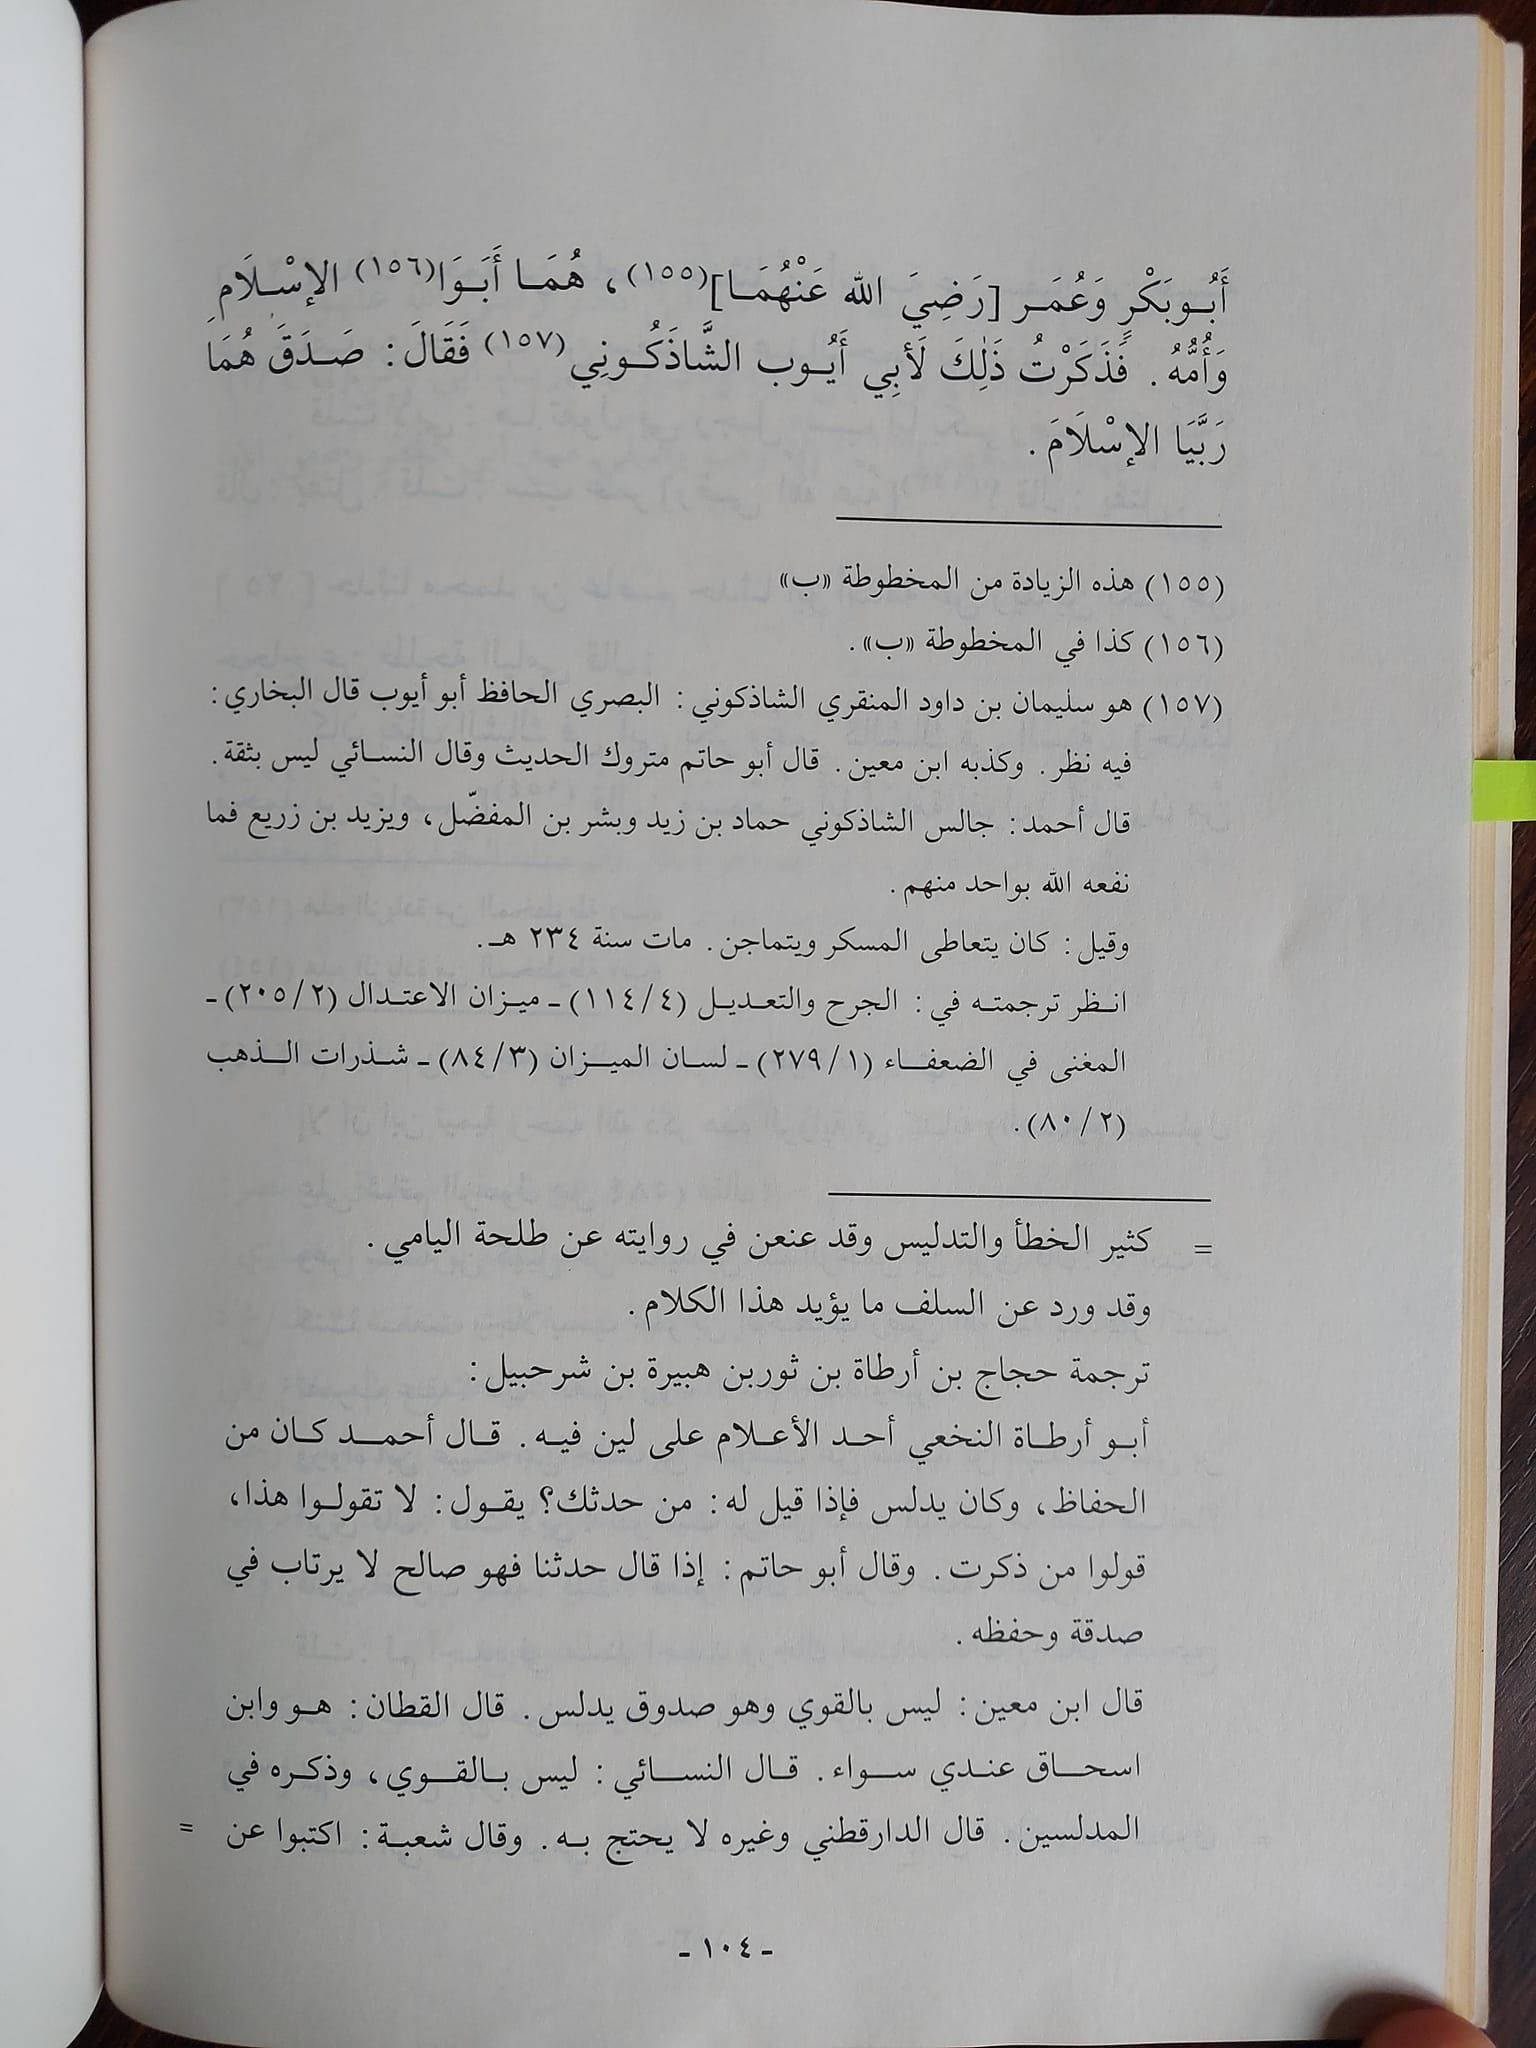 أَبُــوبَكْرٍ وَعُمَــر [رَضِيَ الله عَنْهُمَــا](١٥٥)، هُمَــا أَبَــوَا(١٥٦) الإسْــلَامِ
وَأُمُّهُ. فَذَكَرْتُ ذَلِكَ لَأبِي أَيُــوب الشَّاذَكُــونِي(١٥٧) فَقَالَ: صَــدَقَ هُمَا
رَبَّيَا الإسْلَامَ.
(١٥٥) هذه الزيادة من المخطوطة «ب»
(١٥٦) كذا في المخطوطة «ب».
(١٥٧) هو سليمان بن داود المنقري الشاذكوني: البصري الحافظ أبو أيوب قال البخاري:
فيه نظر. وكذبه ابن معين. قال أبو حاتم متروك الحديث وقال النسائي ليس بثقة.
قال أحمد: جالس الشاذكوني حماد بن زيد وبشر بن المفضّل، ويزيد بن زريع فما
نفعه الله بواحد منهم.
وقيل: كان يتعاطى المسكر ويتماجن. مات سنة ٢٣٤ هـ.
انــظر ترجمتــه في: الجرح والتعــديــل (١١٤/٤) ـ ميــزان الاعتــدال (٢٠٥/٢) ـ
المغنى في الضعفــاء (٢٧٩/١) ـ لســان الميــزان (٨٤/٣) ـ شــذرات الــذهب
(٨٠/٢).
= كثير الخطأ والتدليس وقد عنعن في روايته عن طلحة اليامي.
وقد ورد عن السلف ما يؤيد هذا الكلام.
ترجمة حجاج بن أرطاة بن ثوربن هبيرة بن شرحبيل:
أبــو أرطــاة النخعي أحــد الأعــلام على لين فيــه. قــال أحمــد كــان من
الحفاظ، وكان يدلس فإذا قيل له: من حدثك؟ يقــول: لا تقولــوا هذا،
قولوا من ذكرت. وقال أبو حاتم: إذا قال حدثنا فهو صالح لا يرتاب في
صدقة وحفظه.
قال ابن معين: ليس بالقوي وهو صدوق يدلس. قال القطان: هــو وابن
اسحــاق عنــدي ســواء. قــال النســائي: ليس بــالقــوي، وذكــره في
المدلسين. قال الدارقطني وغيره لا يحتج بــه. وقال شعبــة: اكتبوا عن =
ـ ١٠٤ ـ